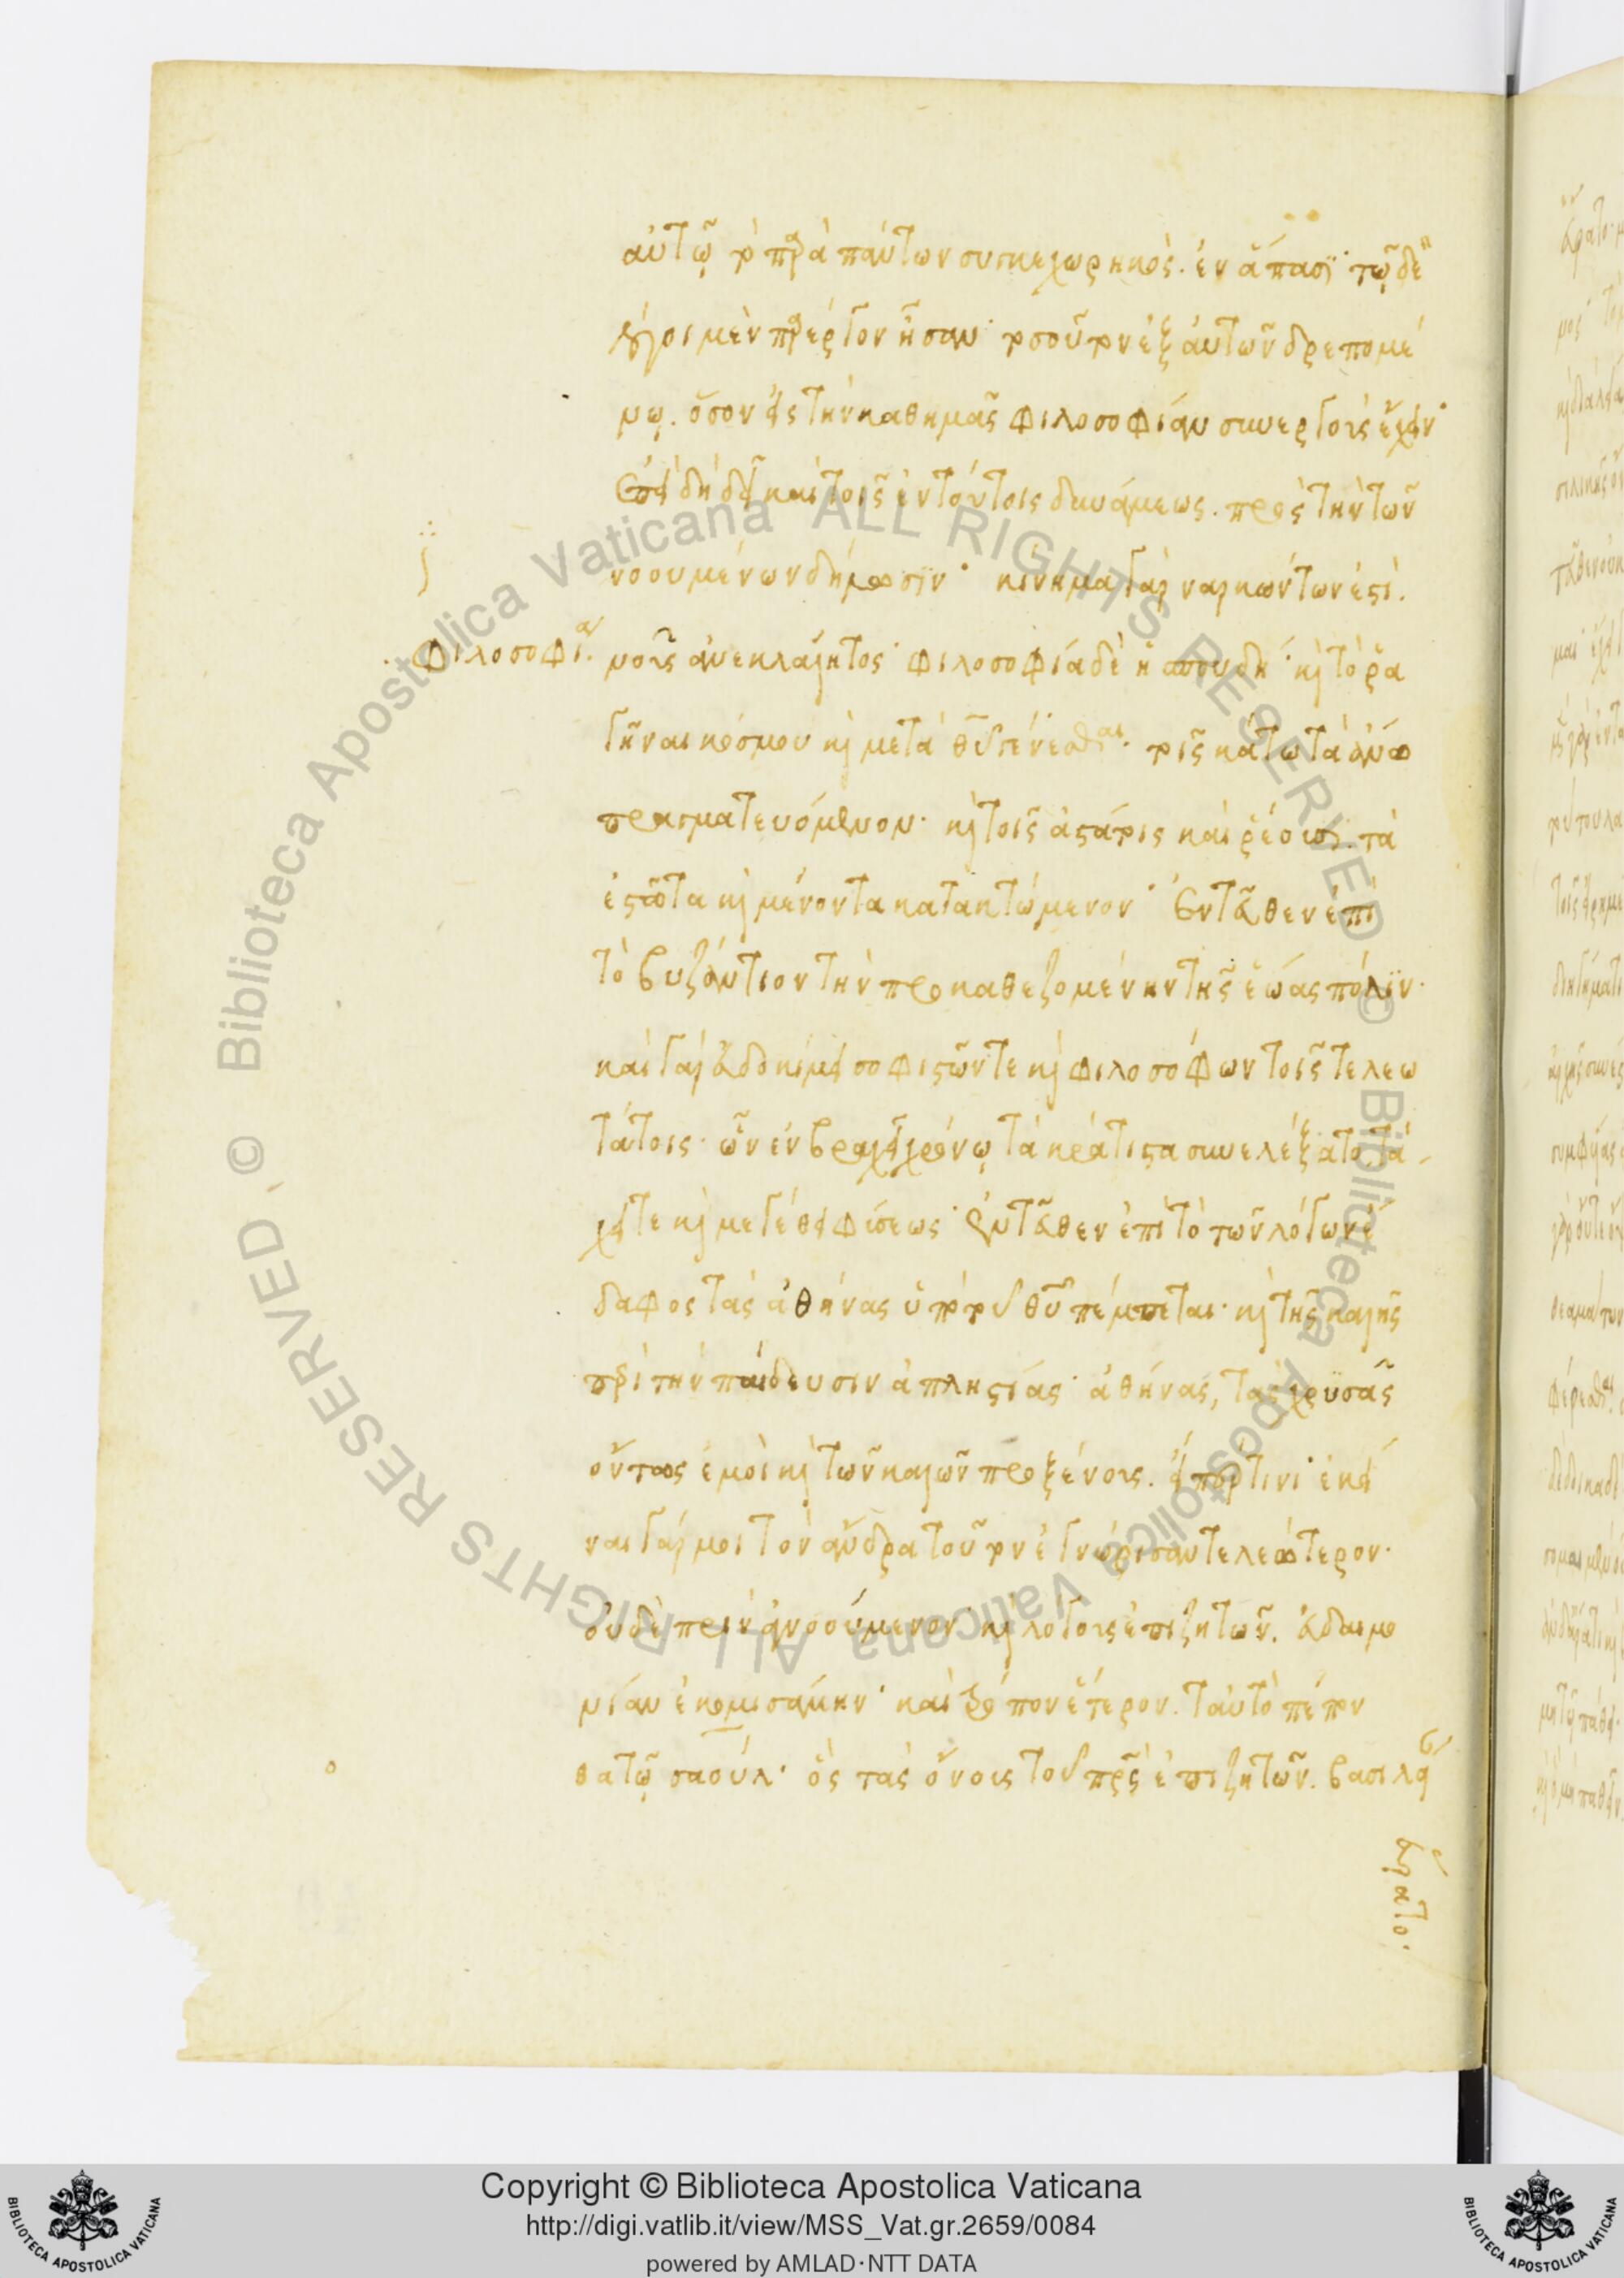 αὐτῷ τὸ παρὰ πάντων συγκεχωρηκός. ἐν ἅπασϊ· τῷ δὲ
λόγοι μὲν πάρεργον ἦσαν· τοσοῦτον ἐξ αὐτῶν δρεπομέ
νῳ. ὅσον εἰς τὴν καθημᾶς φιλοσοφίαν συνεργοὺς ἔχειν·
ἐπειδὴ δεῖ καὶ τοῖς ἐν τούτοις δυνάμεως. πρὸς τὴν τῶν
νοουμένων δήλωσϊν· κίνημα γὰρ ναρκώντων ἐστὶ.
φιλοσοφία
νοῦς ἀνεκλάλητος· φιλοσοφία δὲ ἡ σπουδὴ· καὶ τὸ ῥα
γῆναι κόσμου καὶ μετὰ θυ γενέσθαι. τοῖς κάτω τὰ ἄνω
πραγματευόμενον· καὶ τοῖς ἀστάτοις καὶ ῥέουσϊ. τὰ
ἑστῶτα καὶ μένοντα κατακτώμενον· Ἐντεῦθεν ἐπὶ
τὸ βυζάντιον τὴν προκαθεζομένην τῆς ἑώας πόλϊν·
καὶ γὰρ εὐδοκίμει σοφιστῶν τε καὶ φιλοσόφων τοῖς τελεω
τάτοις· ὧν ἐν βραχεῖ χρόνῳ τὰ κράτιστα συνελέξατο. τά
χει τε καὶ μεγέθει φύσεως· ἐντεῦθεν ἐπὶ τὸ τῶν λόγων ἔ
δαφος τὰς ἀθήνας ὑπὸ τοῦ θυ πέμπεται· καὶ τῆς καλῆς
περὶ τὴν παίδευσιν ἀπληστίας· ἀθήνας, τὰς χρϋσᾶς
ὄντως ἐμοὶ καὶ τῶν καλῶν προξένους. εἴπέρ τινι· ἐκεῖ
ναι γάρ μοι τὸν ἄνδρα τοῦτον ἐγνώρισαν τελεώτερον·
οὐδὲ πρὶν ἀγνοούμενον· καὶ λόγους ἐπιζητῶν. εὐδαιμο
νίαν ἐκομισάμην· καὶ τρόπον ἕτερον. ταὐτὸ πέπον
θα τῷ σαούλ· ὃς τὰς ὄνους τοῦ πρς ἐπιζητῶν. βασιλεί